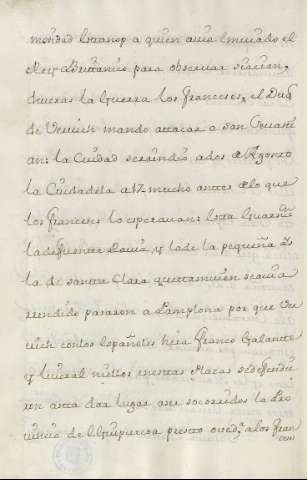 a quien avia imviado el
Rey Britanico para observar si acian
de veras la Guerra los franceses, el Duq
de Vervich mando attacar a san Sevasti
an: la Ciudad se rrindio a dos de Agosto
la Ciudadela a 17 mucho anttes de lo que
los franceses lo esperavan: Esta Guarniⁿ
la de fuentte Ravia y la de la pequeña Is
la de santta Clara que ttamvien se avia
rrendido pararon a Pamplona por que Ver
vich con los españoles hera franco Galantte
y liveral
ron ara dar lugar a ser socorridos la Pro
vincia de Guipuzcoa presto ovedᵃ a los fran
cese